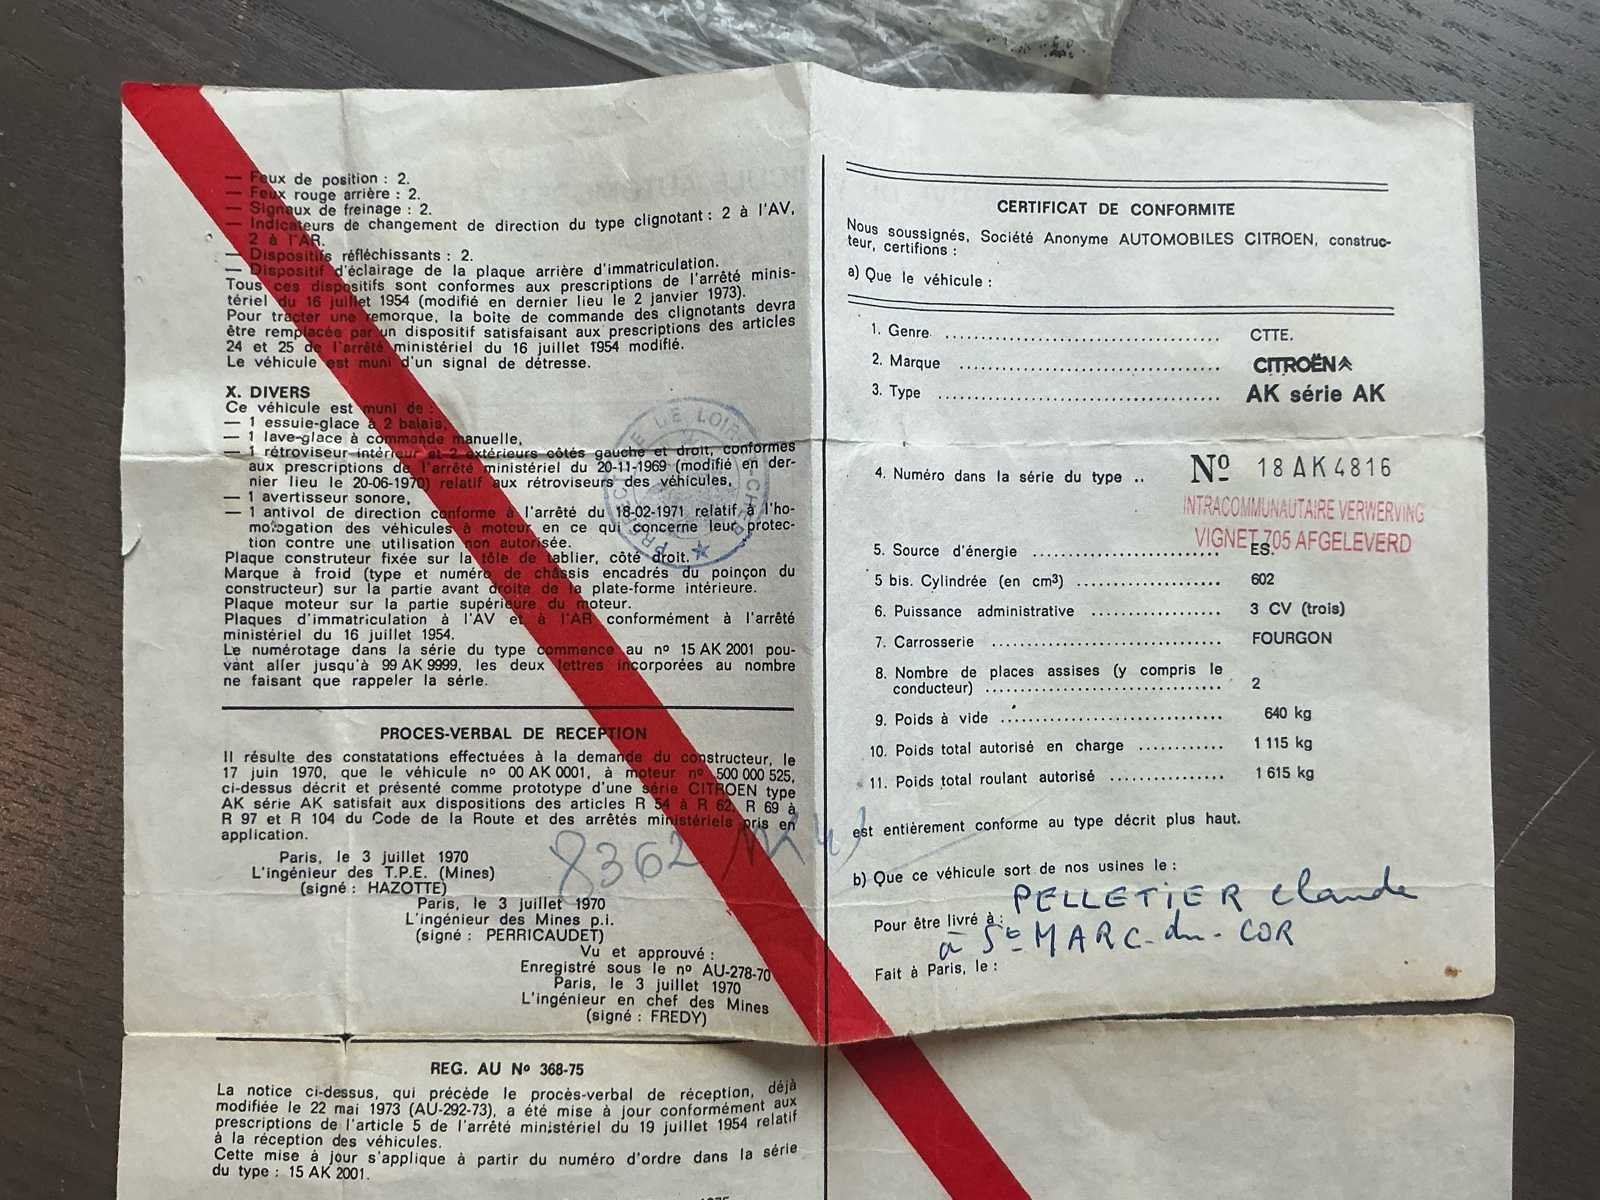 — Feux de position : 2.
— Feux rouge arrière : 2.
— Signaux de freinage : 2.
— Indicateurs de changement de direction du type clignotant : 2 à l'AV,
2 à l'AR.
— Dispositifs réfléchissants : 2.
— Dispositif d'éclairage de la plaque arrière d'immatriculation.
Tous ces dispositifs sont conformes aux prescriptions de l'arrêté minis-
tériel du 16 juillet 1954 (modifié en dernier lieu le 2 janvier 1973).
Pour tracter une remorque, la boîte de commande des clignotants devra
être remplacée par un dispositif satisfaisant aux prescriptions des articles
24 et 25 de l'arrêté ministériel du 16 juillet 1954 modifié.
Le véhicule est muni d'un signal de détresse.
X. DIVERS
Ce véhicule est muni de :
— 1 essuie-glace à 2 balais,
— 1 lave-glace à commande manuelle,
— 1 rétroviseur intérieur et 2 extérieurs côtés gauche et droit, conformes
aux prescriptions de l'arrêté ministériel du 20-11-1969 (modifié en der-
nier lieu le 20-06-1970) relatif aux rétroviseurs des véhicules,
— 1 avertisseur sonore,
— 1 antivol de direction conforme à l'arrêté du 18-02-1971 relatif à l'ho-
mologation des véhicules à moteur en ce qui concerne leur protec-
tion contre une utilisation non autorisée.
Plaque construteur fixée sur la tôle de tablier, côté droit.
Marque à froid (type et numéro de châssis encadrés du poinçon du
constructeur) sur la partie avant droite de la plate-forme intérieure.
Plaque moteur sur la partie supérieure du moteur.
Plaques d'immatriculation à l'AV et à l'AR conformément à l'arrêté
ministériel du 16 juillet 1954.
Le numérotage dans la série du type commence au nº 15 AK 2001 pou-
vant aller jusqu'à 99 AK 9999, les deux lettres incorporées au nombre
ne faisant que rappeler la série.
PREFECTURE DE LOIR-&-CHER
PROCES-VERBAL DE RECEPTION
Il résulte des constatations effectuées à la demande du constructeur, le
17 juin 1970, que le véhicule nº 00 AK 0001, à moteur nº 500 000 525,
ci-dessus décrit et présenté comme prototype d'une série CITROEN type
AK série AK satisfait aux dispositions des articles R 54 à R 62, R 69 à
R 97 et R 104 du Code de la Route et des arrêtés ministériels pris en
application.
8362
Paris, le 3 juillet 1970
L'ingénieur des T.P.E. (Mines)
(signé : HAZOTTE)
Paris, le 3 juillet 1970
L'ingénieur des Mines p.i.
(signé : PERRICAUDET)
Vu et approuvé :
Enregistré sous le nº AU-278-70
Paris, le 3 juillet 1970
L'ingénieur en chef des Mines
(signé : FREDY)
REG. AU Nº 368-75
La notice ci-dessus, qui précède le procès-verbal de réception, déjà
modifiée le 22 mai 1973 (AU-292-73), a été mise à jour conformément aux
prescriptions de l'article 5 de l'arrêté ministériel du 19 juillet 1954 relatif
à la réception des véhicules.
Cette mise à jour s'applique à partir du numéro d'ordre dans la série
du type : 15 AK 2001.
CERTIFICAT DE CONFORMITE
Nous soussignés, Société Anonyme AUTOMOBILES CITROEN, construc-
teur, certifions :
a) Que le véhicule :
1. Genre ........ CTTE.
2. Marque ........ CITROËN
3. Type ........ AK série AK
4. Numéro dans la série du type .. Nº 18 AK 4816
INTRACOMMUNAUTAIRE VERWERVING
VIGNET 705 AFGELEVERD
5. Source d'énergie ........ ES.
5 bis. Cylindrée (en cm³) ........ 602
6. Puissance administrative ........ 3 CV (trois)
7. Carrosserie ........ FOURGON
8. Nombre de places assises (y compris le
conducteur) ........ 2
9. Poids à vide ........ 640 kg
10. Poids total autorisé en charge ........ 1 115 kg
11. Poids total roulant autorisé ........ 1 615 kg
est entièrement conforme au type décrit plus haut.
b) Que ce véhicule sort de nos usines le :
Pour être livré à : PELLETIER Claude
à St-MARC-du-COR
Fait à Paris, le :